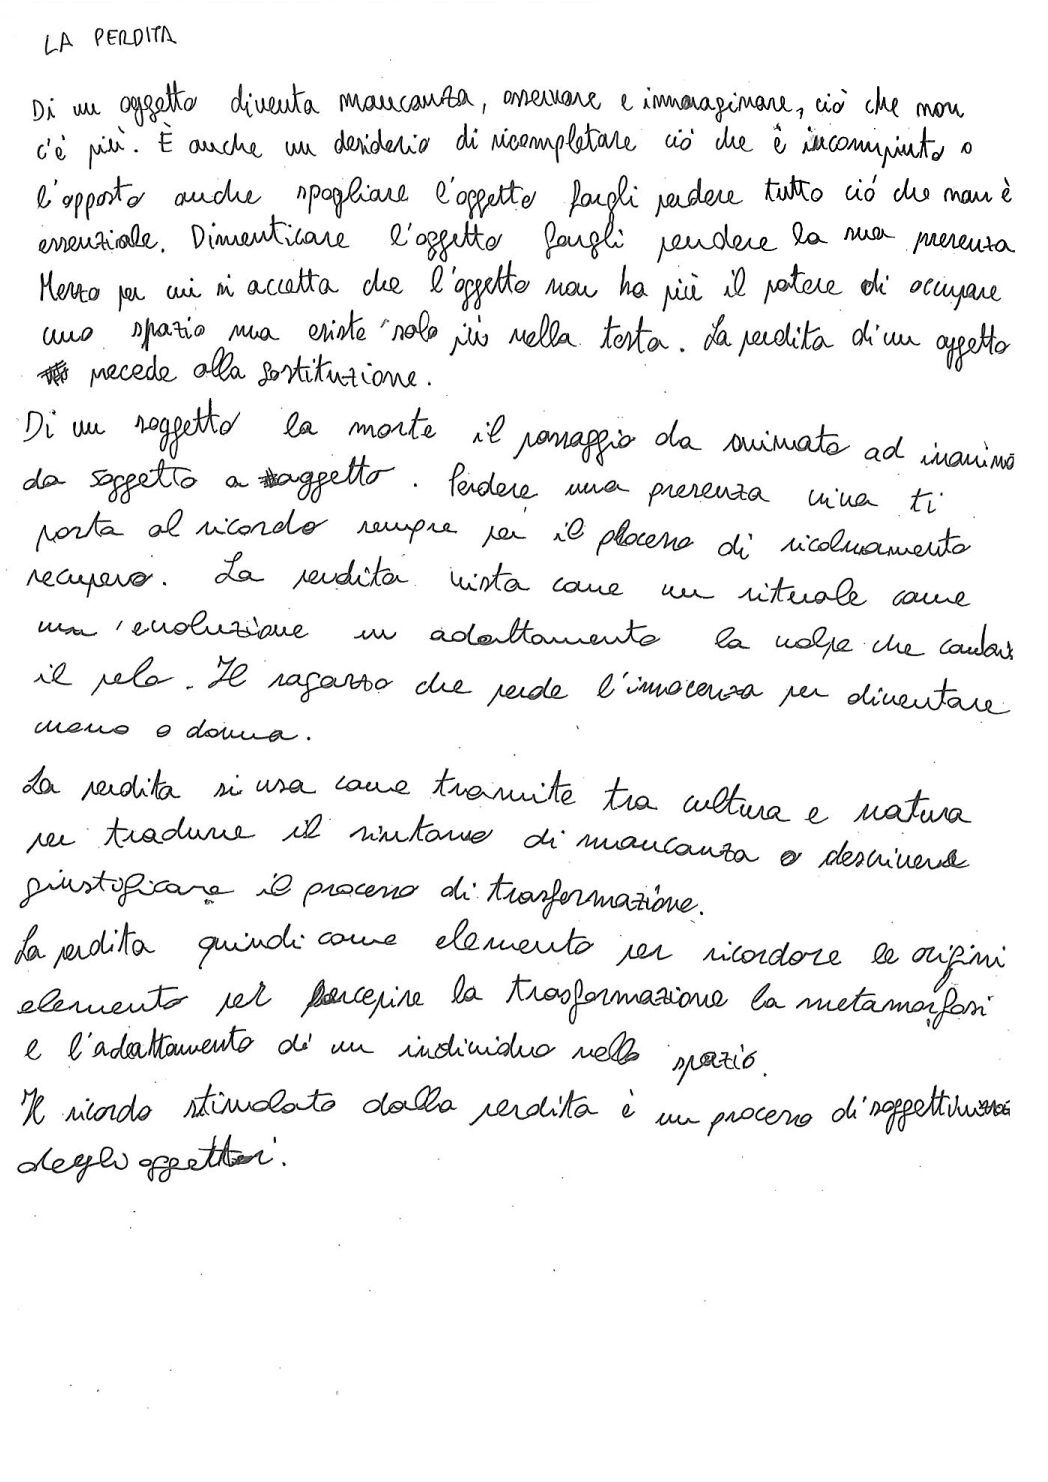 LA PERDITA
Di un oggetto diventa mancanza, osservare e immaraginare, ciò che non
c'è più. È anche un desiderio di ricompletare ciò che è incompiuto o
l'opposto anche spogliare l'oggetto fargli perdere tutto ció che non è
essenziale. Dimenticare l'oggetto fargli perdere la sua presenza
Mezzo per cui si accetta che l'oggetto non ha più il potere di occupare
uno spazio ma esiste solo più nella testa. La perdita di un oggetto
precede alla sostituzione.
Di un soggetto la morte il passaggio da animato ad inanimo
da soggetto a oggetto. Perdere una presenza viva ti
porta al ricordo sempre per il processo di
recupero. La perdita vista come un rituale come
un'evoluzione un adattamento la volpe che cambia
il pelo. Il ragazzo che perde l'innocenza per diventare
uomo o donna.
La perdita si usa come tramite tra cultura e natura
per tradurre il sintomo di mancanza o descrivere
giustificare il processo di trasformazione.
La perdita quindi come elemento per ricordare le origini
elemento per percepire la trasformazione la metamorfosi
e l'adattamento di un individuo nello spazio.
Il ricordo stimolato dalla perdita è un processo di
degli oggetti.